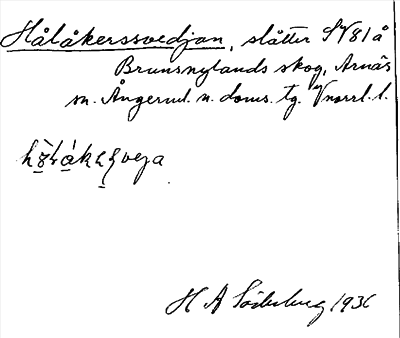 Hålåkerssvedjan, slåtter SV81 å
Brunsnylands skog, Arnäs
sn. Ångerml. n. doms. tg. Vnorrl. l.
H A Söderberg 1936